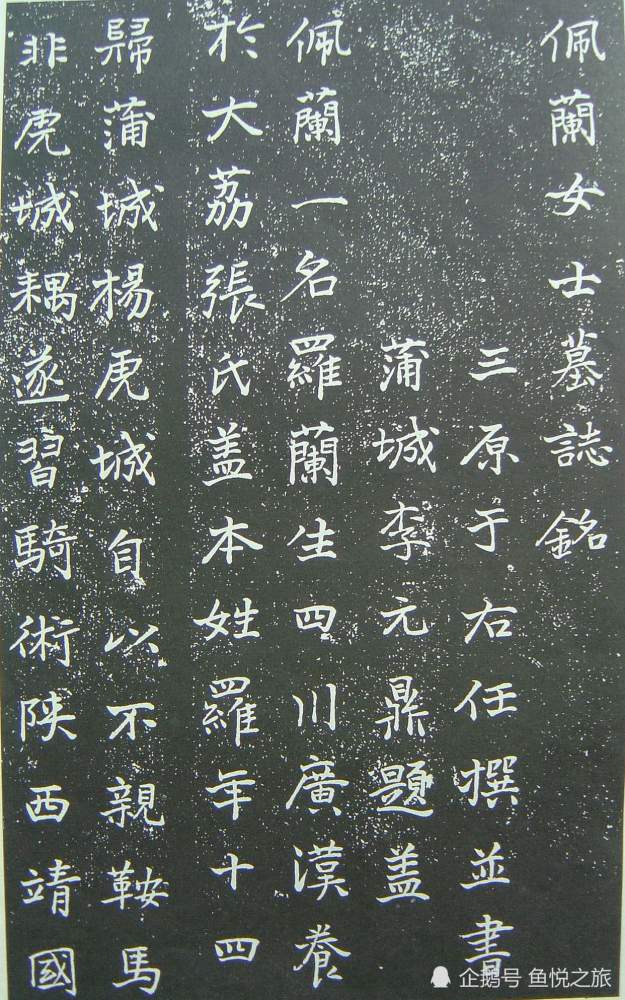 佩蘭女士墓誌銘
三原于右任撰並書
蒲城李元鼎題盖
佩蘭一名羅蘭生四川廣漢养
於大荔張氏盖本姓羅年十四
歸蒲城楊虎城自以不親鞍馬
非虎城耦遂習騎術陕西靖國
企鹅号 鱼悦之旅